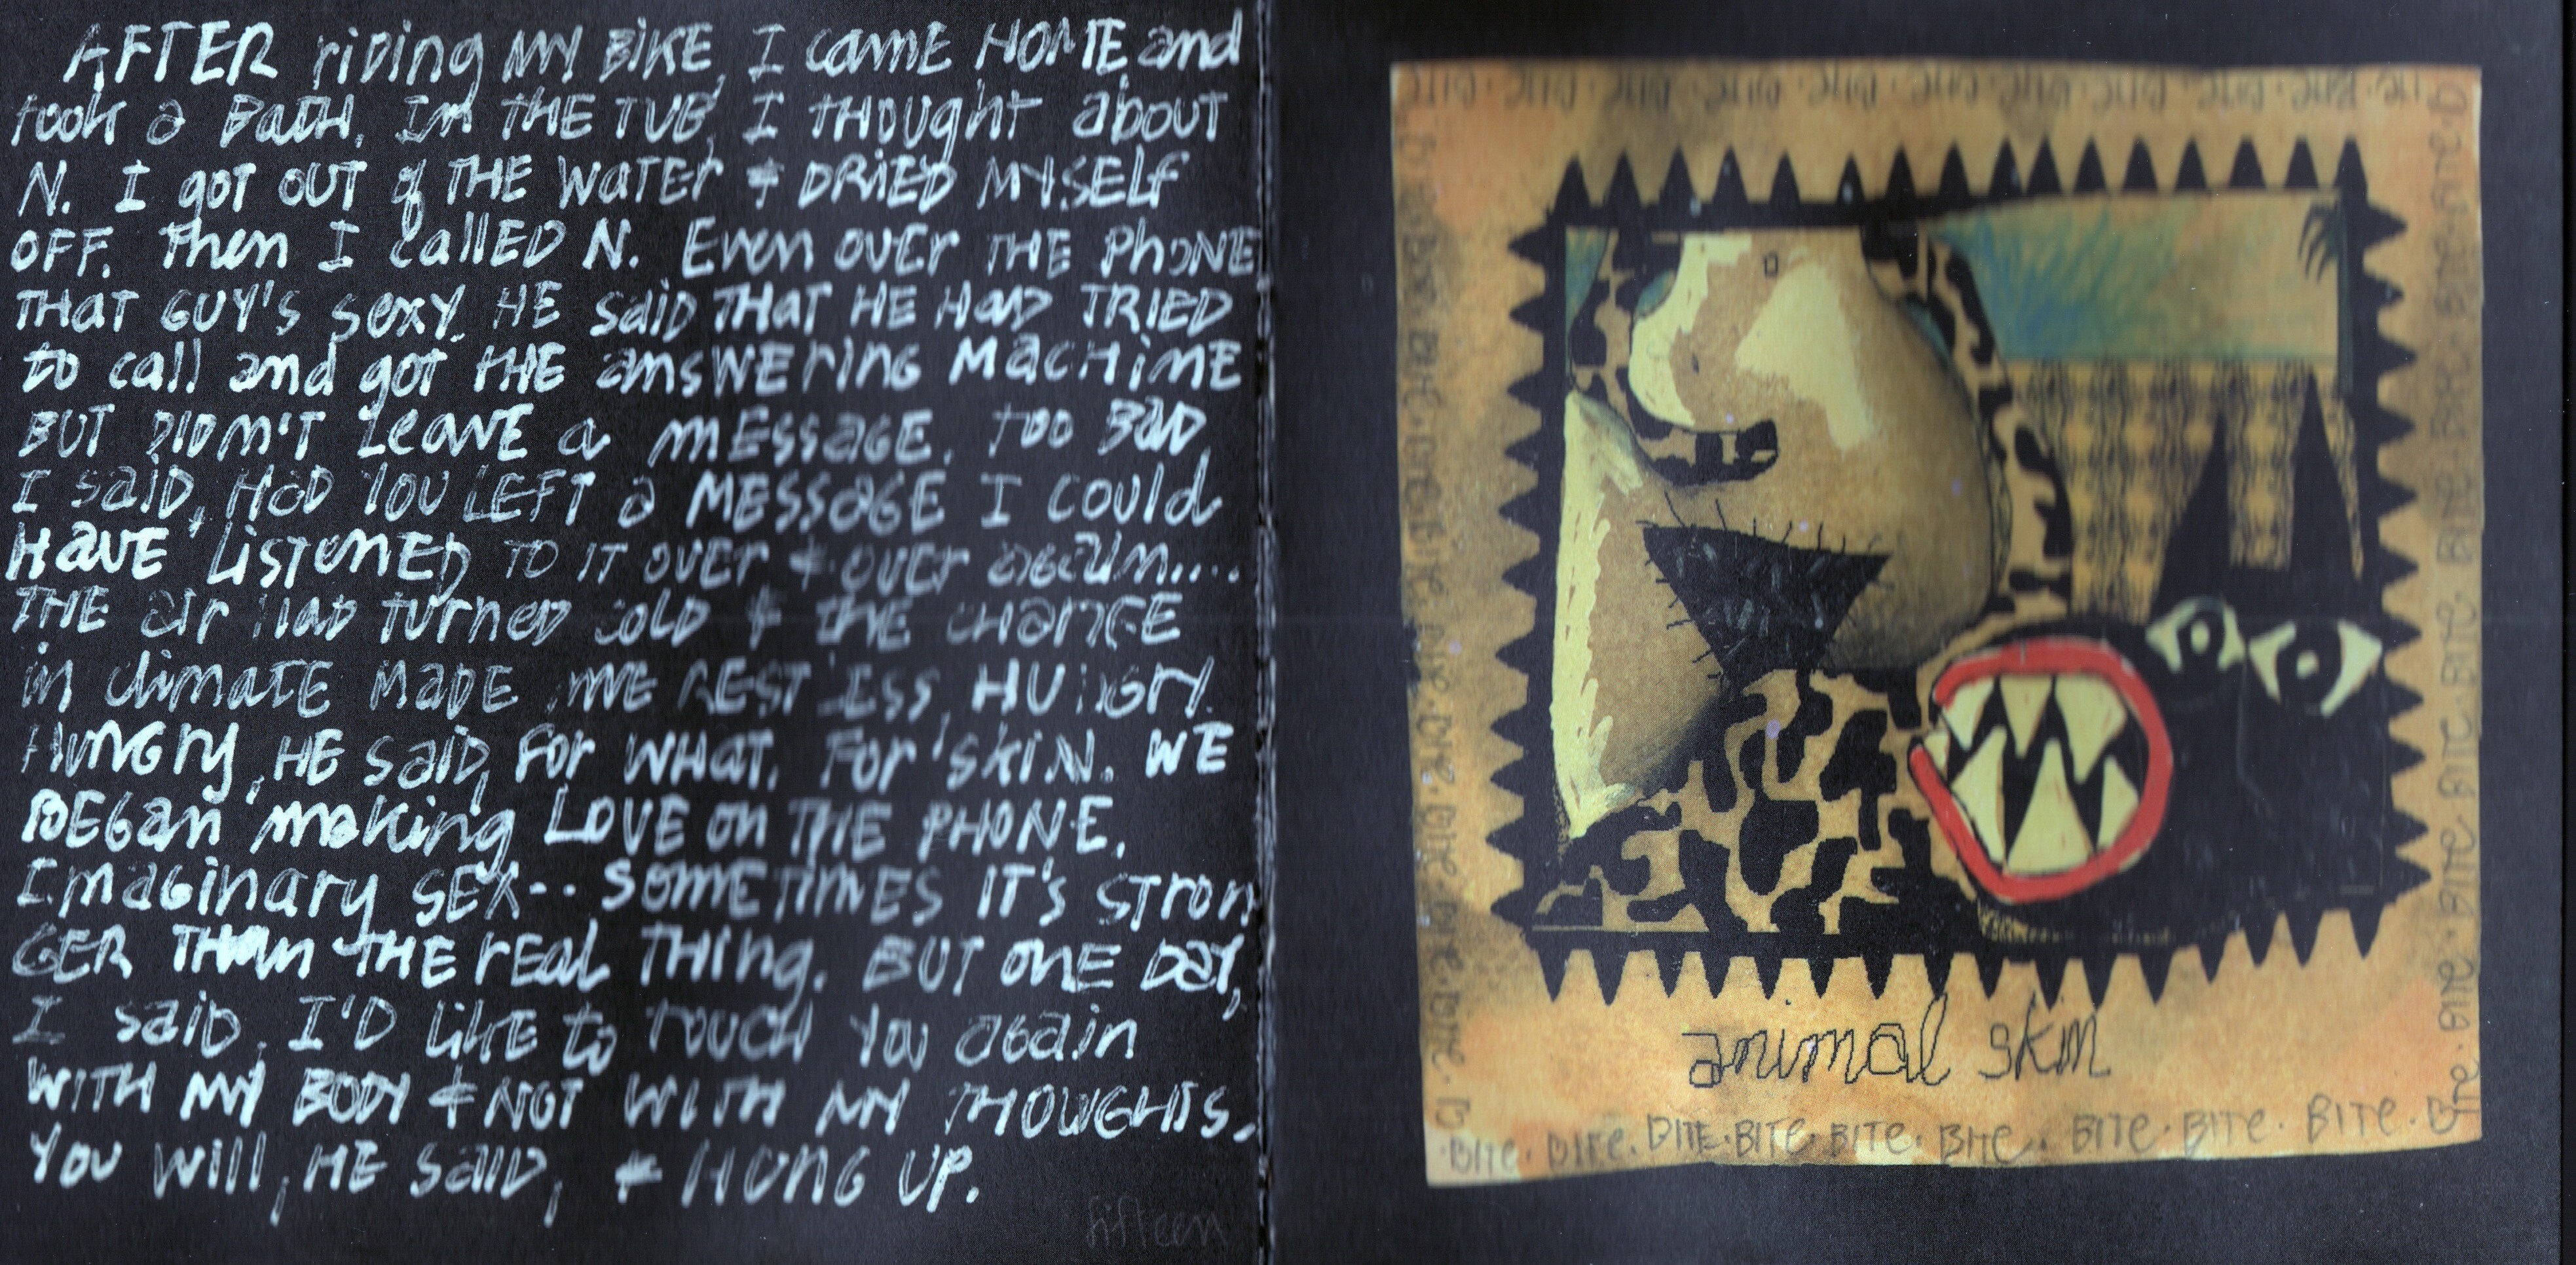 AFTER riDing MY BiKE, I camE HOME and
took a BatH. In THE TUB, I THOUght about
N. I got OUT of THE WaTEr & DRiED MYSELf
OFF. Then I callED N. Even OVEr THE PhONE,
THaT GUY'S sexy. HE saiD THaT HE HaD TRIED
to call and got tHE answEring MacHinE
BUT DIDn'T LeavE a mESsaGE. too BaD,
I saiD, HaD YOU LEFT a MESSaGE I could
HavE LiSTenED TO iT OVEr & OVEr aGain....
THE air HaD turneD colD & tHE cHanGE
in climaTE MaDE mE rESTLESs, HUnGrY.
HUnGry, HE saiD, For WHaT. For SKiN. WE
BEGan making LOVE on THE PHONE.
Imaginary SEX-- SomETimES IT's STron
GER THan THE rEal THing. BUT onE Day,
I saiD, I'D LiKE to TOUCH YoU aGain
WITH MY BODY & NOT WITH MY THOUGHTS.
You Will, HE saiD, & HUNG UP.
fifteen
animal skin
BITe. BITe. BITE. BITe. BITe. BITe. BITe. BITe. BITe. B